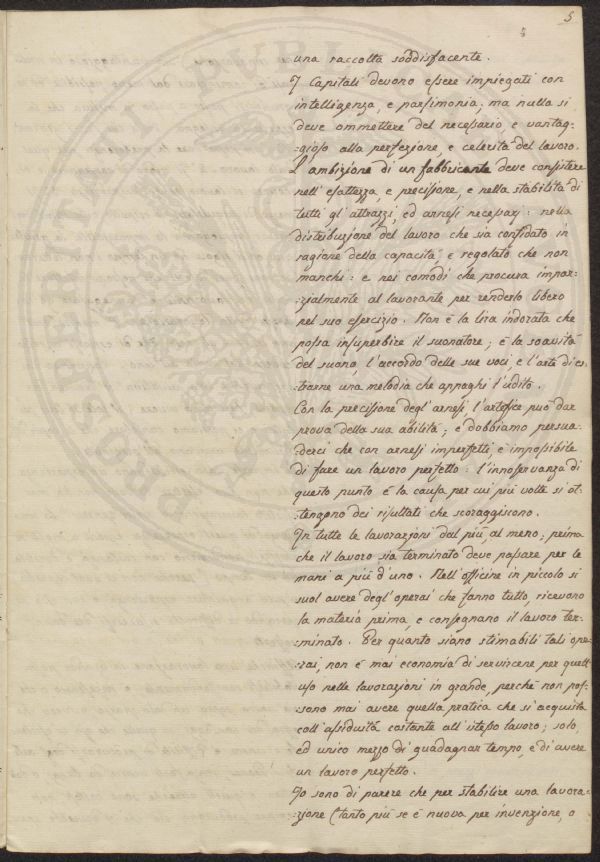 5
5
una raccolta soddisfacente.
I Capitali devono essere impiegati con
intelligenza, e parsimonia; ma nulla si
deve ommettere del necessario, e vantag-
-gioso alla perfezione, e celerità del lavoro.
L'ambizione di un fabbricante deve consistere
nell'esattezza, e precisione, e nella stabilità di
tutti gl'attrazzi, ed arnesi necessarj: nella
distribuzione del lavoro che sia confidato in
ragione della capacità, e regolato che non
manchi: e nei comodi che procura impar-
-zialmente al lavorante per renderlo libero
nel suo esercizio. Non è la lira indorata che
possa insuperbire il suonatore; è la soavità
del suono, l'accordo delle sue voci, e l'arte di es-
-trarne una melodia che appaghi l'udito.
Con la precisione degl'arnesi l'artefice può dar
prova della sua abilità; e dobbiamo persua-
derci che con arnesi imperfetti è impossibile
di fare un lavoro perfetto: l'innosservanza di
questo punto è la causa per cui più volte si ot-
-tengono dei risultati che scoraggiscono.
In tutte le lavorazioni dal più, al meno; prima
che il lavoro sia terminato deve passare per le
mani a più d'uno. Nell'officine in piccolo si
suol avere degl'operai che fanno tutto, ricevono
la materia prima, e consegnano il lavoro ter-
-minato. Per quanto siano stimabili tali ope-
rai, non è mai economia di servircene per quell'
uso nelle lavorazioni in grande, perchè non pos-
-sono mai avere quella pratica che si acquista
coll'assiduità costante all'istesso lavoro; solo,
ed unico mezzo di guadagnar tempo, e di avere
un lavoro perfetto.
Io sono di parere che per stabilire una lavora-
-zione (tanto più se è nuova per invenzione, o
PROSPERITATI PUBL